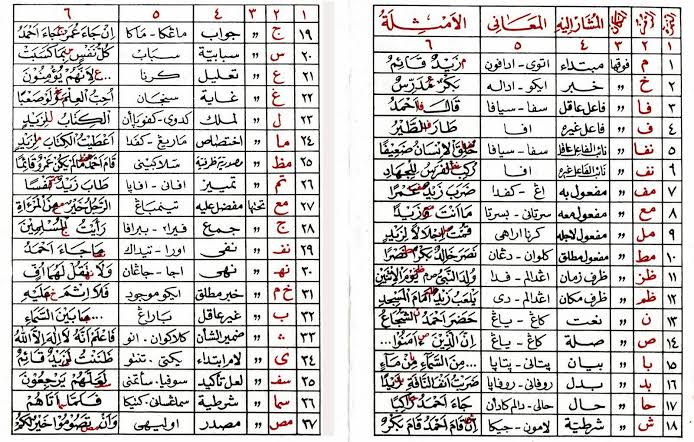 المشار إليه المعانى الأمثلة
١ ٢ ٣ ٤ ٥ ٦
١ م فوقها مبتداء اتوى - ادافون زيد قائم
٢ خ " خبر ايكو - اداله بكر مدرس
٣ فا " فاعل عاقل سفا - سيافا قال احمد
٤ ف " فاعل غيره افا طار الطير
٥ نفا " نائب الفاعل عاقل سفا - سيافا خلق الإنسان ضعيفا
٦ نف " نائب الفاعل غيره افا ركب الفرس للجهاد
٧ مف " مفعول به اغ - كفدا ضرب زيد عمرا
٨ مع " مفعول معه سرتانى - بسرتا ما انت وزيدا
٩ مل " مفعول لاجله كرنا اراهى قمت إجلالا لزيد
١٠ مط " مفعول مطلق كلوان - دڠان نصر خالد بكرا نصرا
١١ ظز " ظرف زمان اغدالم - فدا ولد النبى يوم الإثنين
١٢ ظم " ظرف مكان اغدالم - دى يلعب زيد امام المسجد
١٣ ن " نعت كاڠ - ياڠ حضر احمد الشجاع
١٤ ص " صلة كاڠ - ياڠ إن الذين امنوا...
١٥ با " بيان پتانى - پتاپا ...من السماء من ماء
١٦ بد " بدل روفانى - روفاپا ضربت أنف الناقة زيدا
١٧ حا " حال حالى - دالم كادأن جاء احمد راكبا
١٨ ش " شرطية لامون - جيكا إن قام احمد قام بكر
١ ٢ ٣ ٤ ٥ ٦
١٩ ج " جواب ماڠكا - ماكا إن جاء عمر جاء احمد
٢٠ س " سبابية سباب كل نفس بما كسبت
٢١ ع " تعليل كرنا ...لأنهم يؤمنون
٢٢ غ " غاية سنجان أحب العلم ولو صعبا
٢٣ ل " لملك كدوى - كفوپاأن الكتاب لزيد
٢٤ ما " اختصاص ماريڠ - كفدا اعطيت الكتاب لزيد
٢٥ مظ " مصدرية ظرفية سلاكينى قام احمد ما لم يكن عمرو قائما
٢٦ تم " تمييز افانى - افاپا طاب زيد نفسا
٢٧ مع تحتها مفضل عليه تينمباڠ الرجل خير من المرءة
٢٨ ج " جمع فيرا٢ - ببرافا رأيت المسلمين
٢٩ نف " نفى اورا - تيداك ما جاء احمد
٣٠ نه " نهى اجا - جاڠان ولا تقل لهما أف
٣١ خ م " خبر مطلق ايكو موجود فلا إثم عليه
٣٢ ب " غير عاقل باراڠ ...ما بين السماء
٣٣ ث " ضمير الشأن كلاكوان - انو فاعلم أنه لا إله إلا الله
٣٤ ى " لام ابتداء يكتى - تنتو ظننت لزيد قائم
٣٥ سف " لعل تأكيد سوفيا - سأتمنى لعلهم يرجعون
٣٦ سما " شرطية سماڠسانى - كتيكا فلما أتاهم
٣٧ مص " مصدر اوليهى وأن تصوموا خير لكم